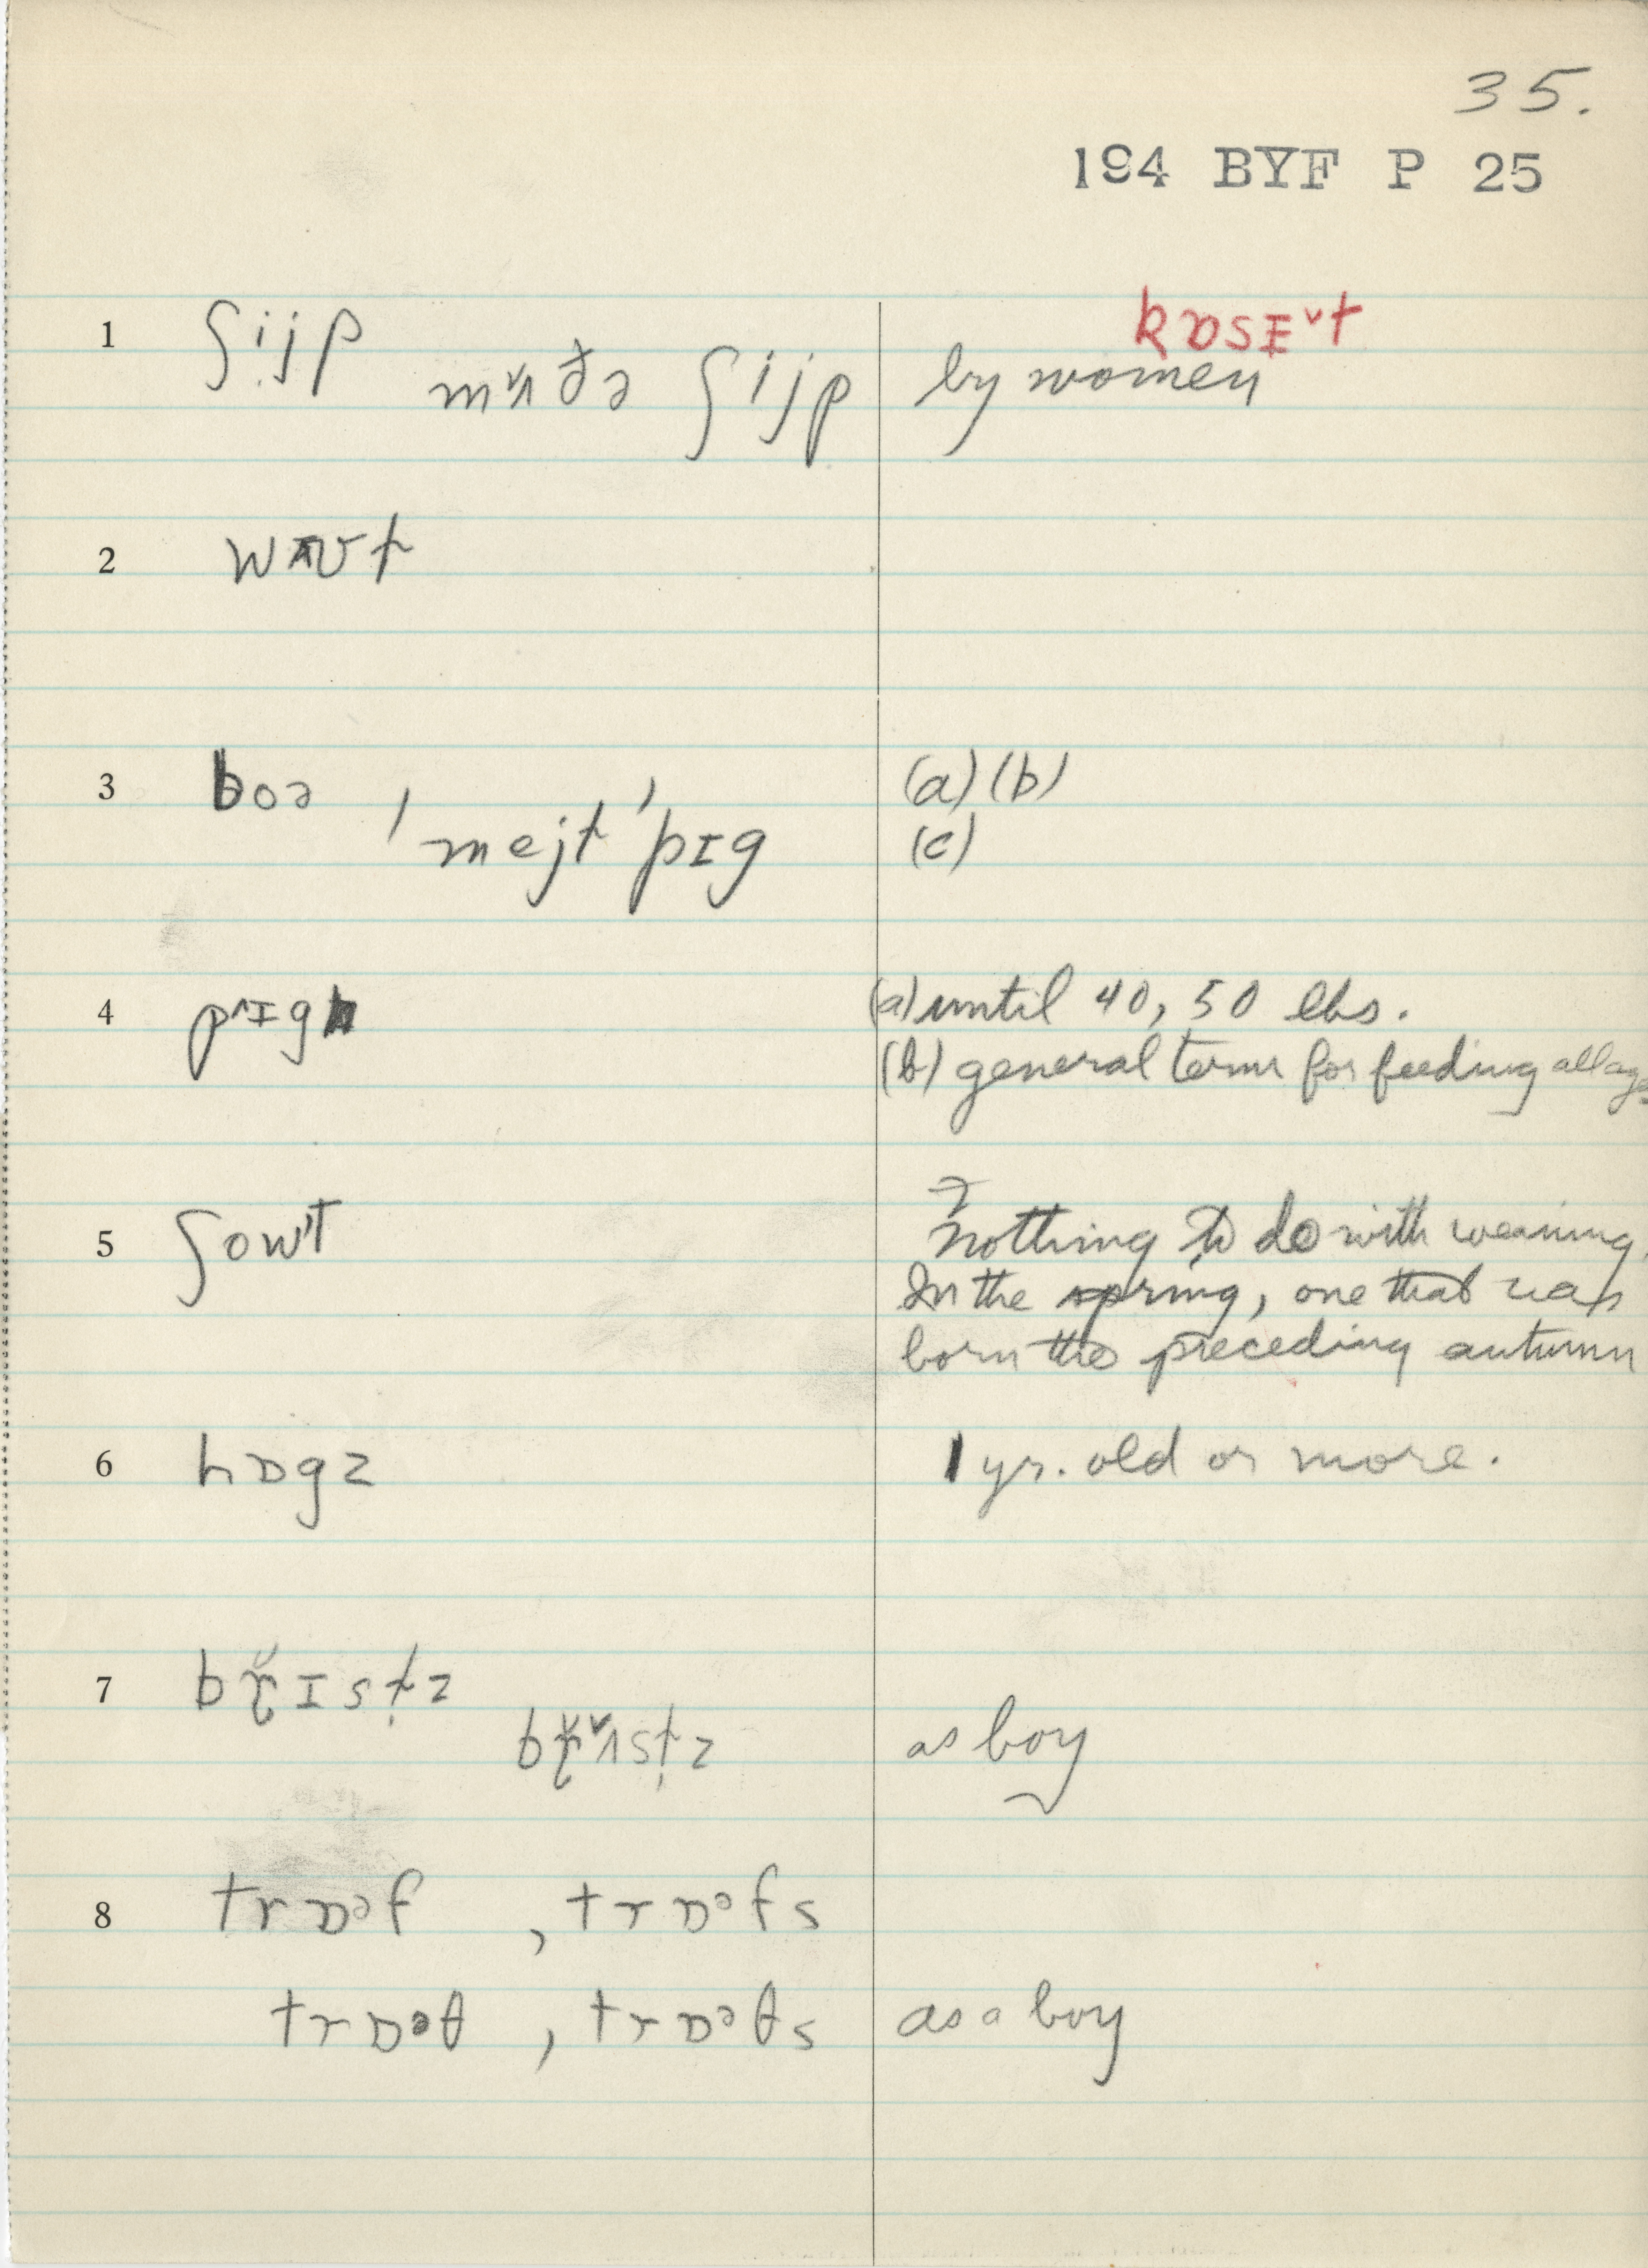 35.
194 BYF P 25
kɒsɛ˅t
1 ʃijp
mʌ̌ðə ʃijp by women
2
3 boə , (a) (b)
mejt' pɪg (c)
4 pɪg (a) until 40, 50 lbs.
(b) general term for feeding all ages
5 ʃowt Nothing to do with weaning.
In the spring, one that was
born the preceding autumn
6 hɒgz 1 yr. old or more.
7 bř̥ɪst̩z
bř̥ʌ̌st̩z as boy
8 trɒəf , trɒəfs
trɒəθ , trɒəθs as a boy